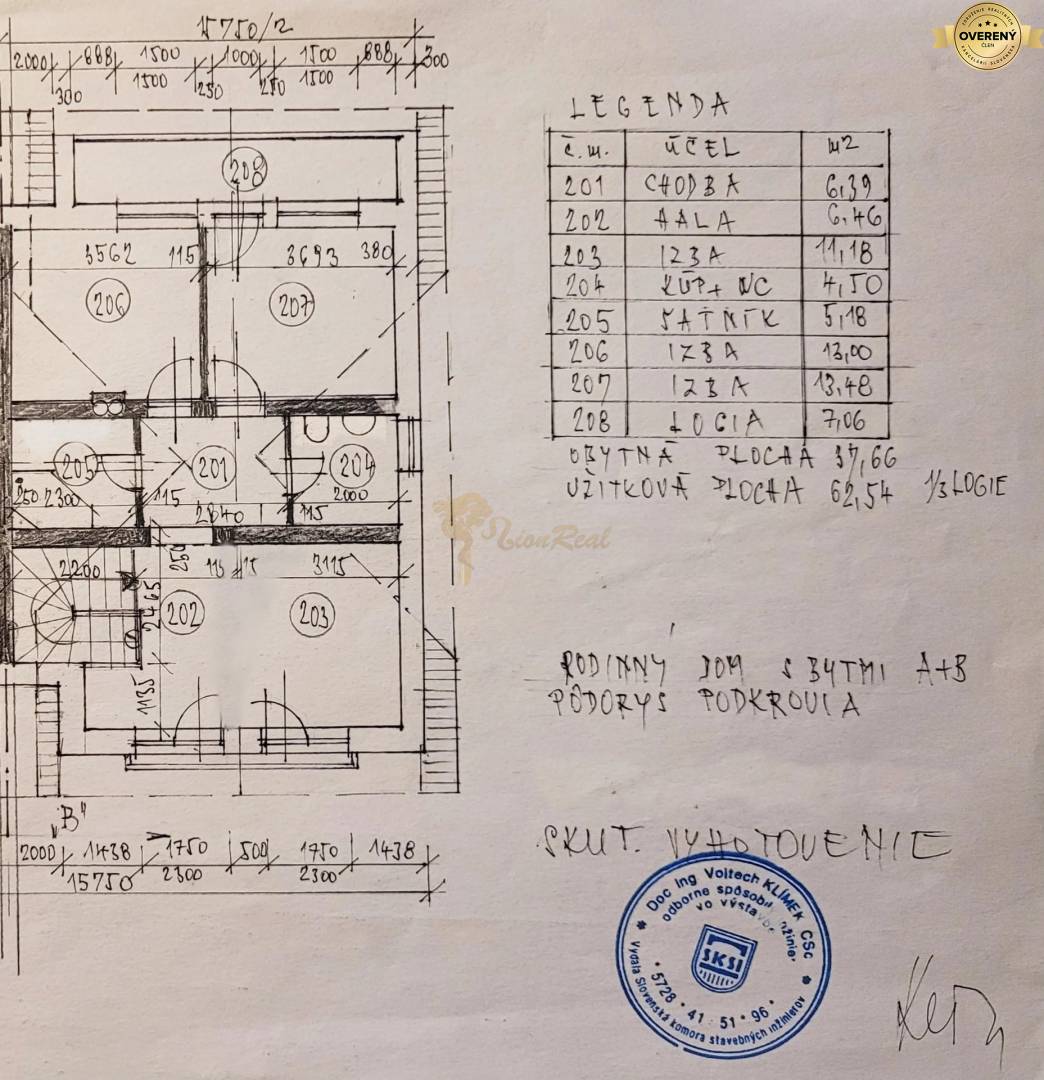 15750/2
2000 888 1500 1000 1500 888 300
300 1500 250 250 1500
208
3562 115 3693 380
206 207
205 201 204
250 2300 115 2000
2840 115
2200 250 115 115 3115
2465
202 203
1135
„B"
2000 1438 1750 500 1750 1438
15750 2300 2300
OVERENÝ
ČLEN
ZDRUŽENIE REALITNÝCH
KANCELÁRIÍ SLOVENSKA
LEGENDA
č.m. ÚČEL m2
201 CHODBA 6,39
202 HALA 6,46
203 IZBA 11,18
204 KÚP+ WC 4,50
205 ŠATNÍK 5,18
206 IZBA 13,00
207 IZBA 13,48
208 LOGIA 7,06
OBYTNÁ PLOCHA 37,66
UŽITKOVÁ PLOCHA 62,54 1/3 LOGIE
LionReal
RODINNÝ DOM S BYTMI A+B
PÔDORYS PODKROVIA
SKUT. VYHOTOVENIE
Doc Ing Vojtech KLIMEK CSc
odborne spôsobilý inžinier
vo výstavbe
SKSI
* 5728 * 41 51 * 96 *
Vydala Slovenská komora stavebných inžinierov